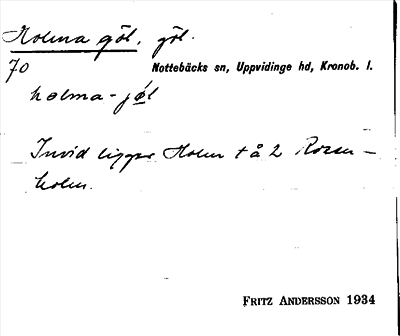 Holma göl, göl.
70
Nottebäcks sn, Uppvidinge hd, Kronob. l.
holma-jøl
Invid ligger Holm t å 2 Rosen-
holm.
FRITZ ANDERSSON 1934